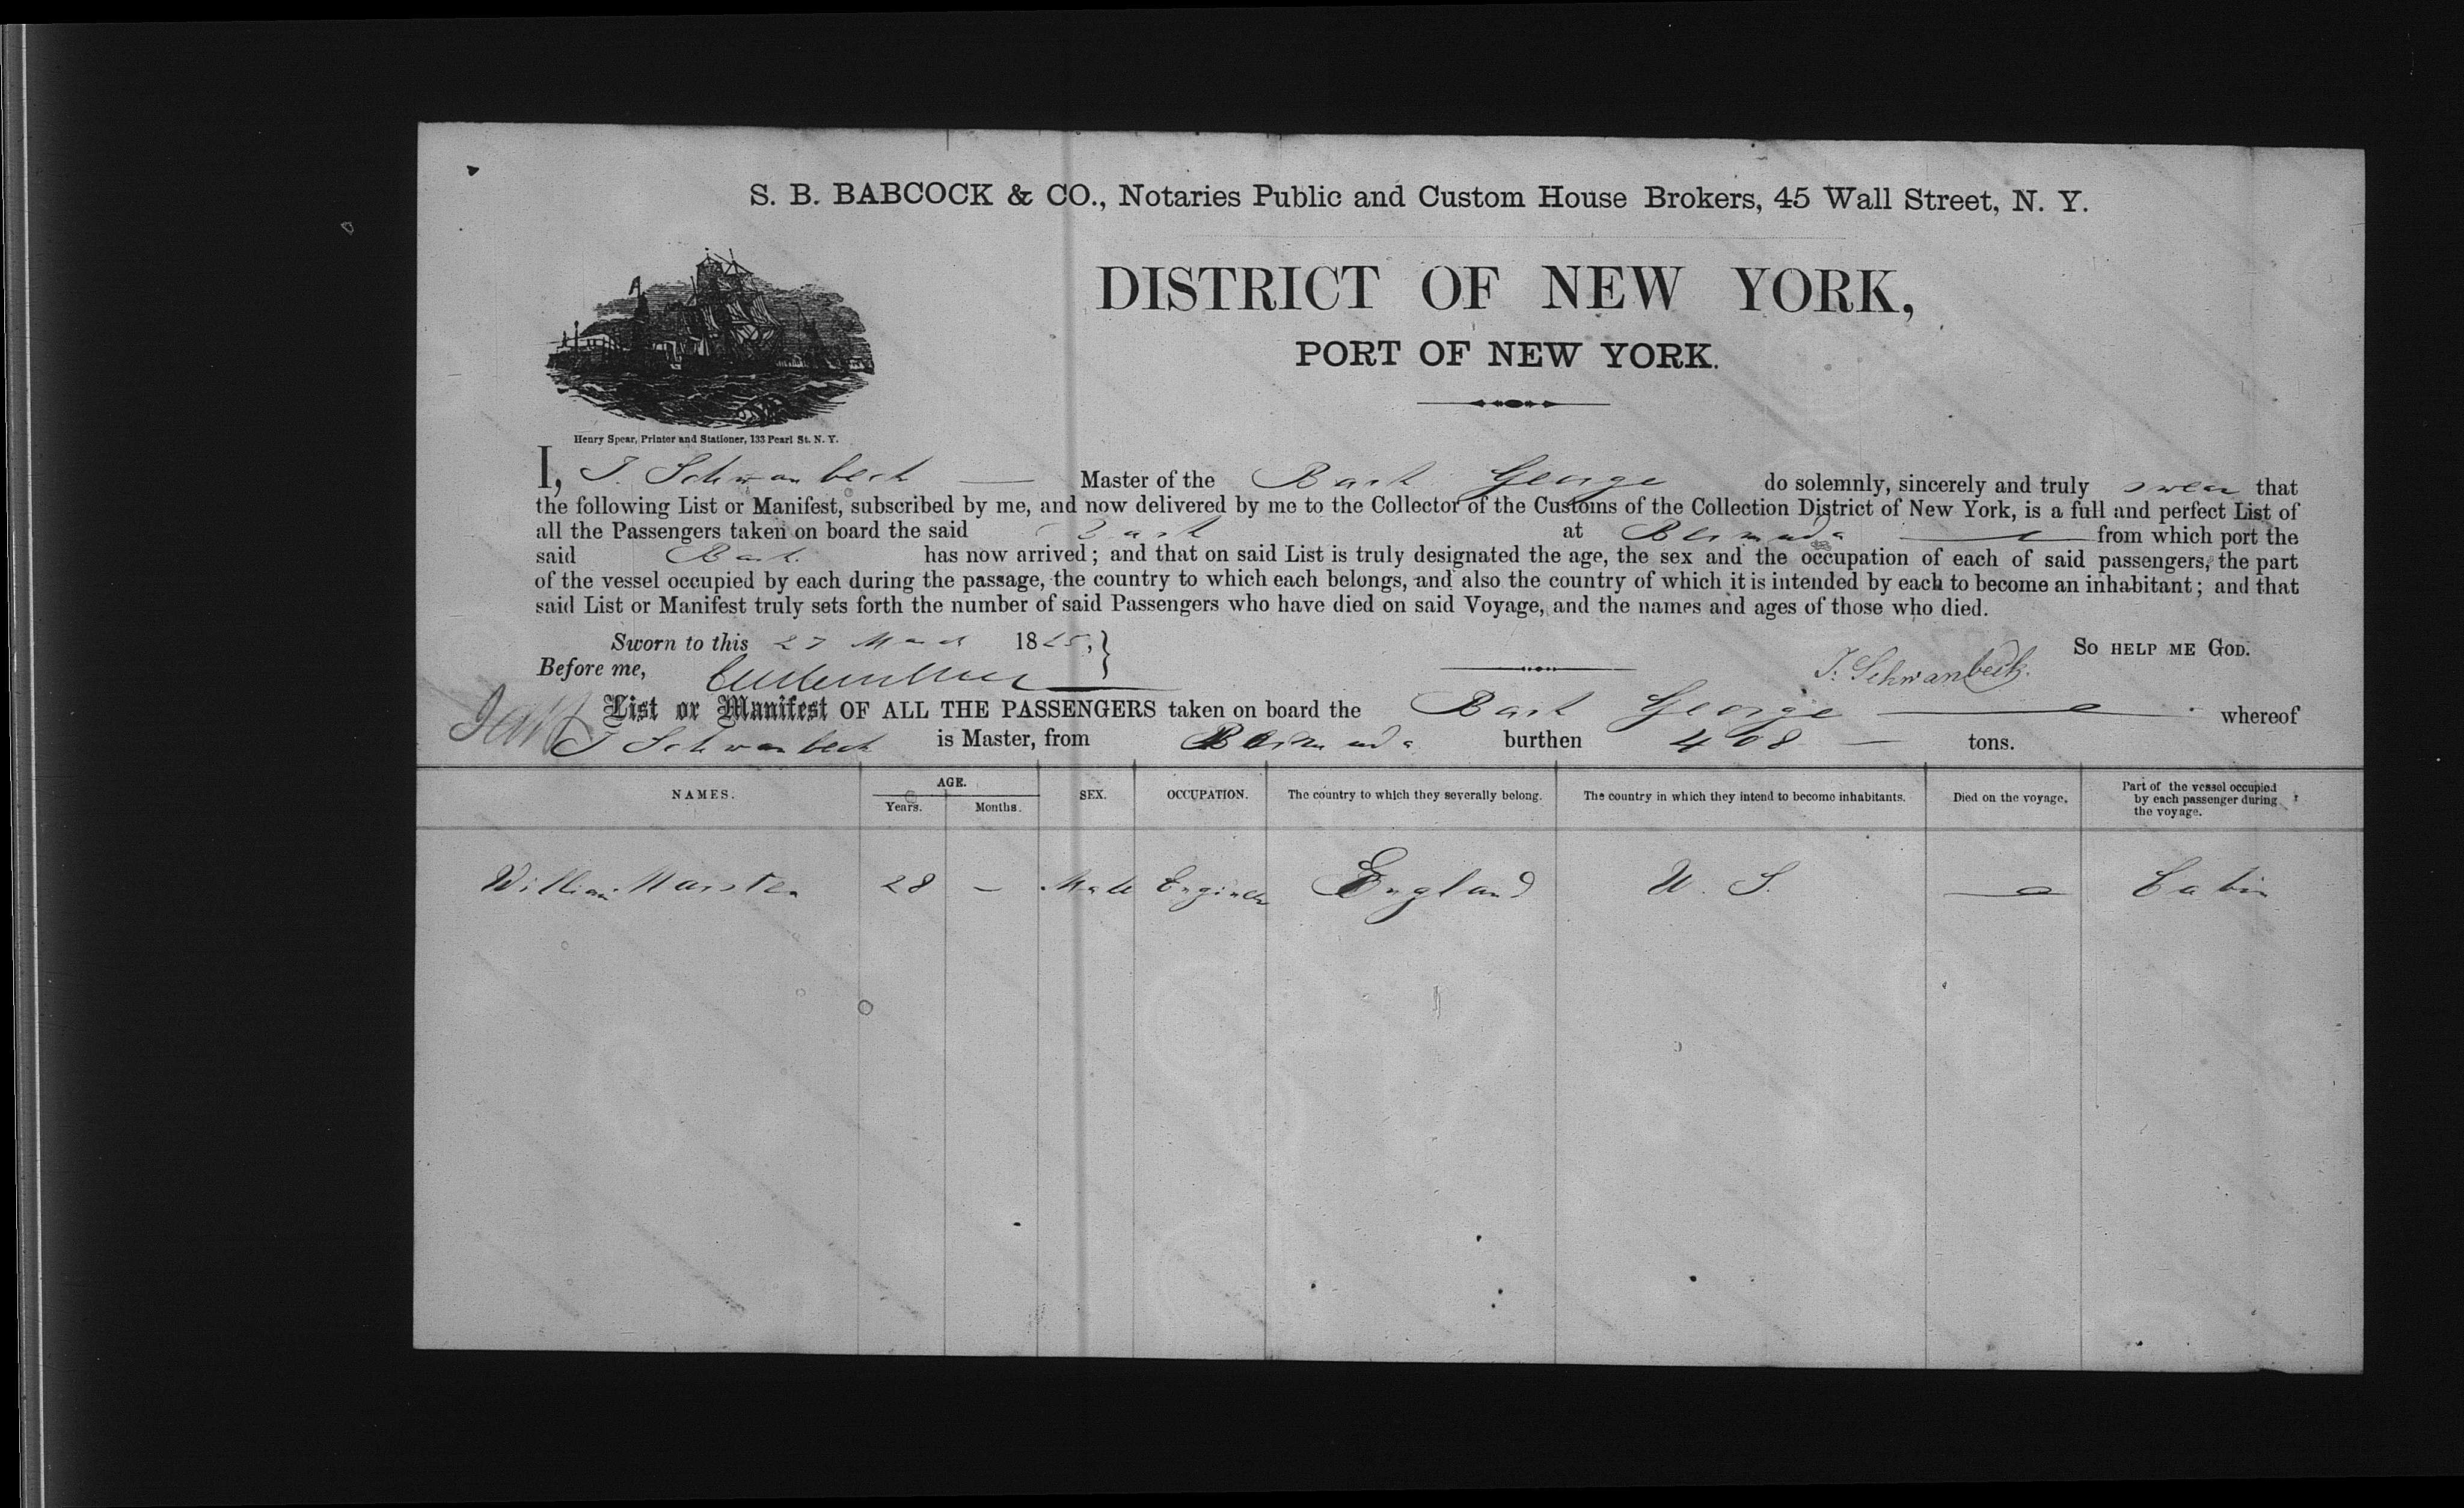 S. B. BABCOCK & CO., Notaries Public and Custom House Brokers, 45 Wall Street, N. Y.
DISTRICT OF NEW YORK,
PORT OF NEW YORK.
Henry Spear, Printer and Stationer, 133 Pearl St. N. Y.
I, J. Schwanbeck Master of the Bark George do solemnly, sincerely and truly swear that
the following List or Manifest, subscribed by me, and now delivered by me to the Collector of the Customs of the Collection District of New York, is a full and perfect List of
all the Passengers taken on board the said Bark at Bermuda from which port the
said Bark has now arrived; and that on said List is truly designated the age, the sex and the occupation of each of said passengers, the part
of the vessel occupied by each during the passage, the country to which each belongs, and also the country of which it is intended by each to become an inhabitant; and that
said List or Manifest truly sets forth the number of said Passengers who have died on said Voyage, and the names and ages of those who died.
Sworn to this 27 March 1865, SO HELP ME GOD.
Before me, J. Schwanbeck.
List or Manifest OF ALL THE PASSENGERS taken on board the Bark George whereof
J Schwanbeck is Master, from Bermuda burthen 408 tons.
NAMES. AGE. Years. Months. SEX. OCCUPATION. The country to which they severally belong. The country in which they intend to become inhabitants. Died on the voyage. Part of the vessel occupied by each passenger during the voyage.
William Marsten 28 — Male Engineer England U. S. — Cabin